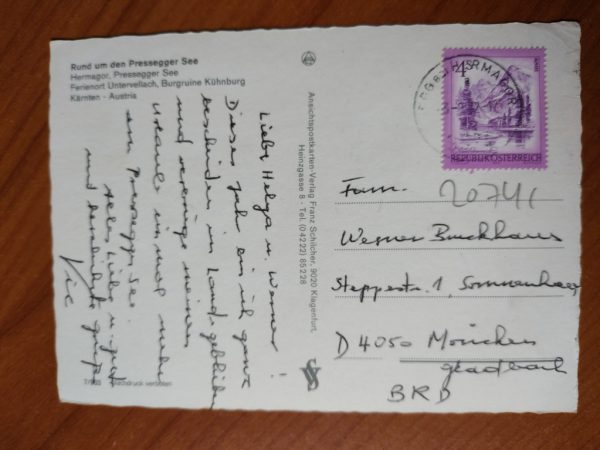 Rund um den Pressegger See
Hermagor, Pressegger See
Ferienort Untervellach, Burgruine Kühnburg
Kärnten - Austria
Liebe Helga u. Werner!
Dieses Jahr bin ich ganz
bescheiden in Lande geblieben
und verbringe meinen
Urlaub einmal mehr
am Pressegger See.
alles Liebe u. gut
und herzliche Grüße
7/955 Nachdruck verboten
Ansichtspostkarten-Verlag Franz Schilcher, 9020 Klagenfurt,
Heinzgasse 8 - Tel. (04222) 85228
HERMAGOR
S 4
REPUBLIK ÖSTERREICH
20741
Fam.
Werner Bruckhaus
1,
D 4050 München
gladbach
BRD